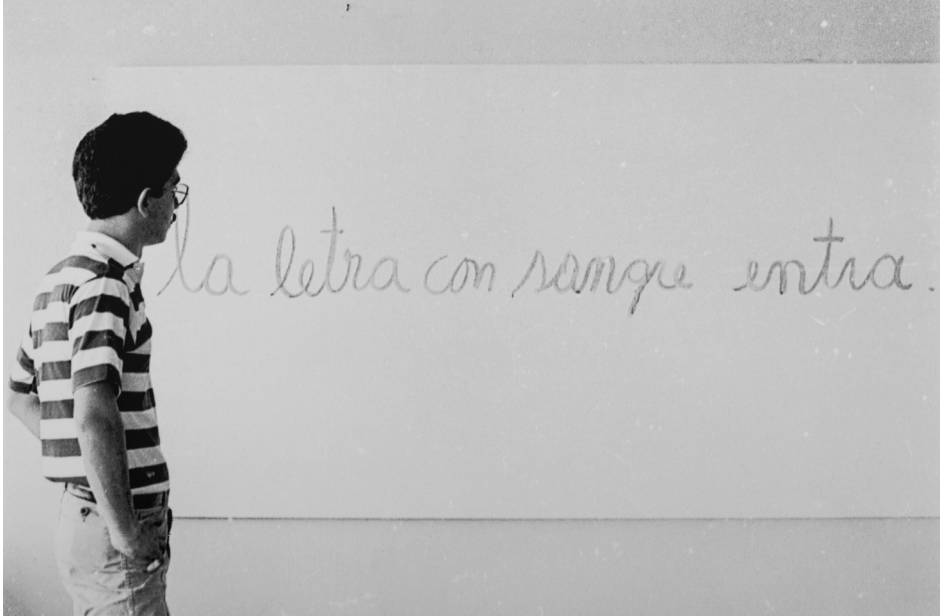 la letra con sangre entra.